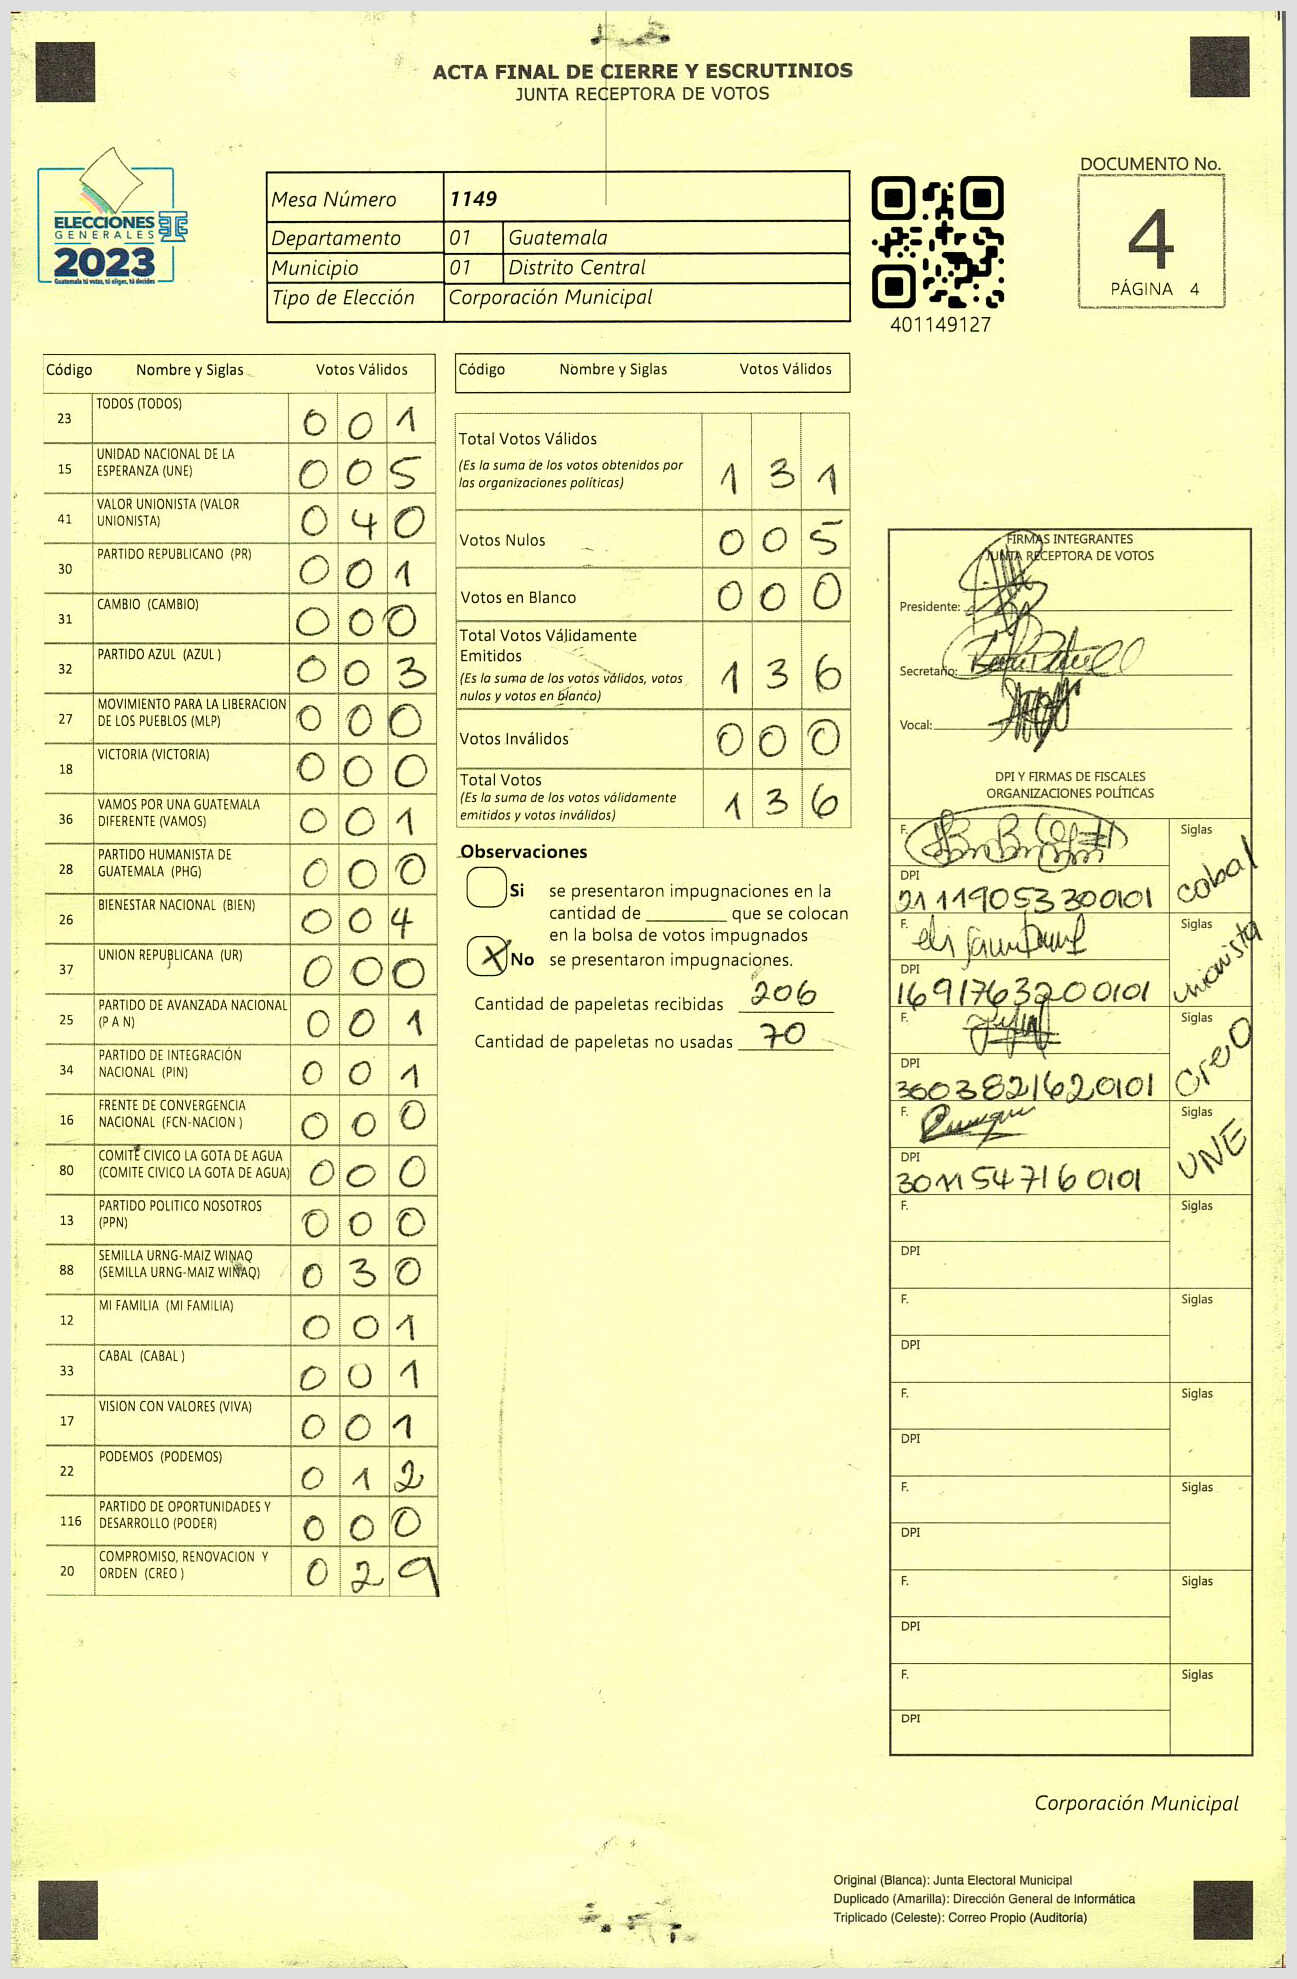 ACTA FINAL DE CIERRE Y ESCRUTINIOS
JUNTA RECEPTORA DE VOTOS
ELECCIONES
GENERALES
2023
Guatemala tú votas, tú eliges, tú decides
Mesa Número 1149
Departamento 01 Guatemala
Municipio 01 Distrito Central
Tipo de Elección Corporación Municipal
401149127
DOCUMENTO No.
4
PÁGINA 4
Código Nombre y Siglas Votos Válidos
23 TODOS (TODOS) 0 0 1
15 UNIDAD NACIONAL DE LA
ESPERANZA (UNE) 0 0 5
41 VALOR UNIONISTA (VALOR
UNIONISTA) 0 4 0
30 PARTIDO REPUBLICANO (PR) 0 0 1
31 CAMBIO (CAMBIO) 0 0 0
32 PARTIDO AZUL (AZUL ) 0 0 3
27 MOVIMIENTO PARA LA LIBERACION
DE LOS PUEBLOS (MLP) 0 0 0
18 VICTORIA (VICTORIA) 0 0 0
36 VAMOS POR UNA GUATEMALA
DIFERENTE (VAMOS) 0 0 1
28 PARTIDO HUMANISTA DE
GUATEMALA (PHG) 0 0 0
26 BIENESTAR NACIONAL (BIEN) 0 0 4
37 UNION REPUBLICANA (UR) 0 0 0
25 PARTIDO DE AVANZADA NACIONAL
(P A N) 0 0 1
34 PARTIDO DE INTEGRACIÓN
NACIONAL (PIN) 0 0 1
16 FRENTE DE CONVERGENCIA
NACIONAL (FCN-NACION ) 0 0 0
80 COMITÉ CIVICO LA GOTA DE AGUA
(COMITE CIVICO LA GOTA DE AGUA) 0 0 0
13 PARTIDO POLITICO NOSOTROS
(PPN) 0 0 0
88 SEMILLA URNG-MAIZ WINAQ
(SEMILLA URNG-MAIZ WINAQ) 0 3 0
12 MI FAMILIA (MI FAMILIA) 0 0 1
33 CABAL (CABAL ) 0 0 1
17 VISION CON VALORES (VIVA) 0 0 1
22 PODEMOS (PODEMOS) 0 1 2
116 PARTIDO DE OPORTUNIDADES Y
DESARROLLO (PODER) 0 0 0
20 COMPROMISO, RENOVACION Y
ORDEN (CREO ) 0 2 9
Código Nombre y Siglas Votos Válidos
Total Votos Válidos
(Es la suma de los votos obtenidos por
las organizaciones políticas) 1 3 1
Votos Nulos 0 0 5
Votos en Blanco 0 0 0
Total Votos Válidamente
Emitidos
(Es la suma de los votos válidos, votos
nulos y votos en blanco) 1 3 6
Votos Inválidos 0 0 0
Total Votos
(Es la suma de los votos válidamente
emitidos y votos inválidos) 1 3 6
Observaciones
Si se presentaron impugnaciones en la
cantidad de ________ que se colocan
en la bolsa de votos impugnados
X No se presentaron impugnaciones.
Cantidad de papeletas recibidas 206
Cantidad de papeletas no usadas 70
FIRMAS INTEGRANTES
JUNTA RECEPTORA DE VOTOS
Presidente:
Secretario:
Vocal:
DPI Y FIRMAS DE FISCALES
ORGANIZACIONES POLÍTICAS
F. Siglas
cabal
DPI
2111905330101
F. Siglas
unionista
DPI
1691763200101
F. Siglas
Creo
DPI
3003821620101
F. Siglas
UNE
DPI
3011547160101
F. Siglas
DPI
F. Siglas
DPI
F. Siglas
DPI
F. Siglas
DPI
F. Siglas
DPI
F. Siglas
DPI
Corporación Municipal
Original (Blanca): Junta Electoral Municipal
Duplicado (Amarilla): Dirección General de Informática
Triplicado (Celeste): Correo Propio (Auditoría)